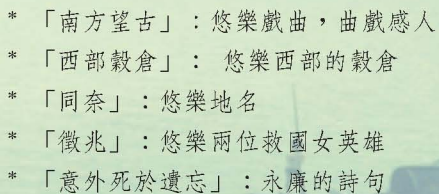 * 「南方望古」：悠樂戲曲，曲戲感人
* 「西部穀倉」： 悠樂西部的穀倉
* 「同奈」：悠樂地名
* 「徵兆」：悠樂兩位救國女英雄
* 「意外死於遺忘」：永廉的詩句